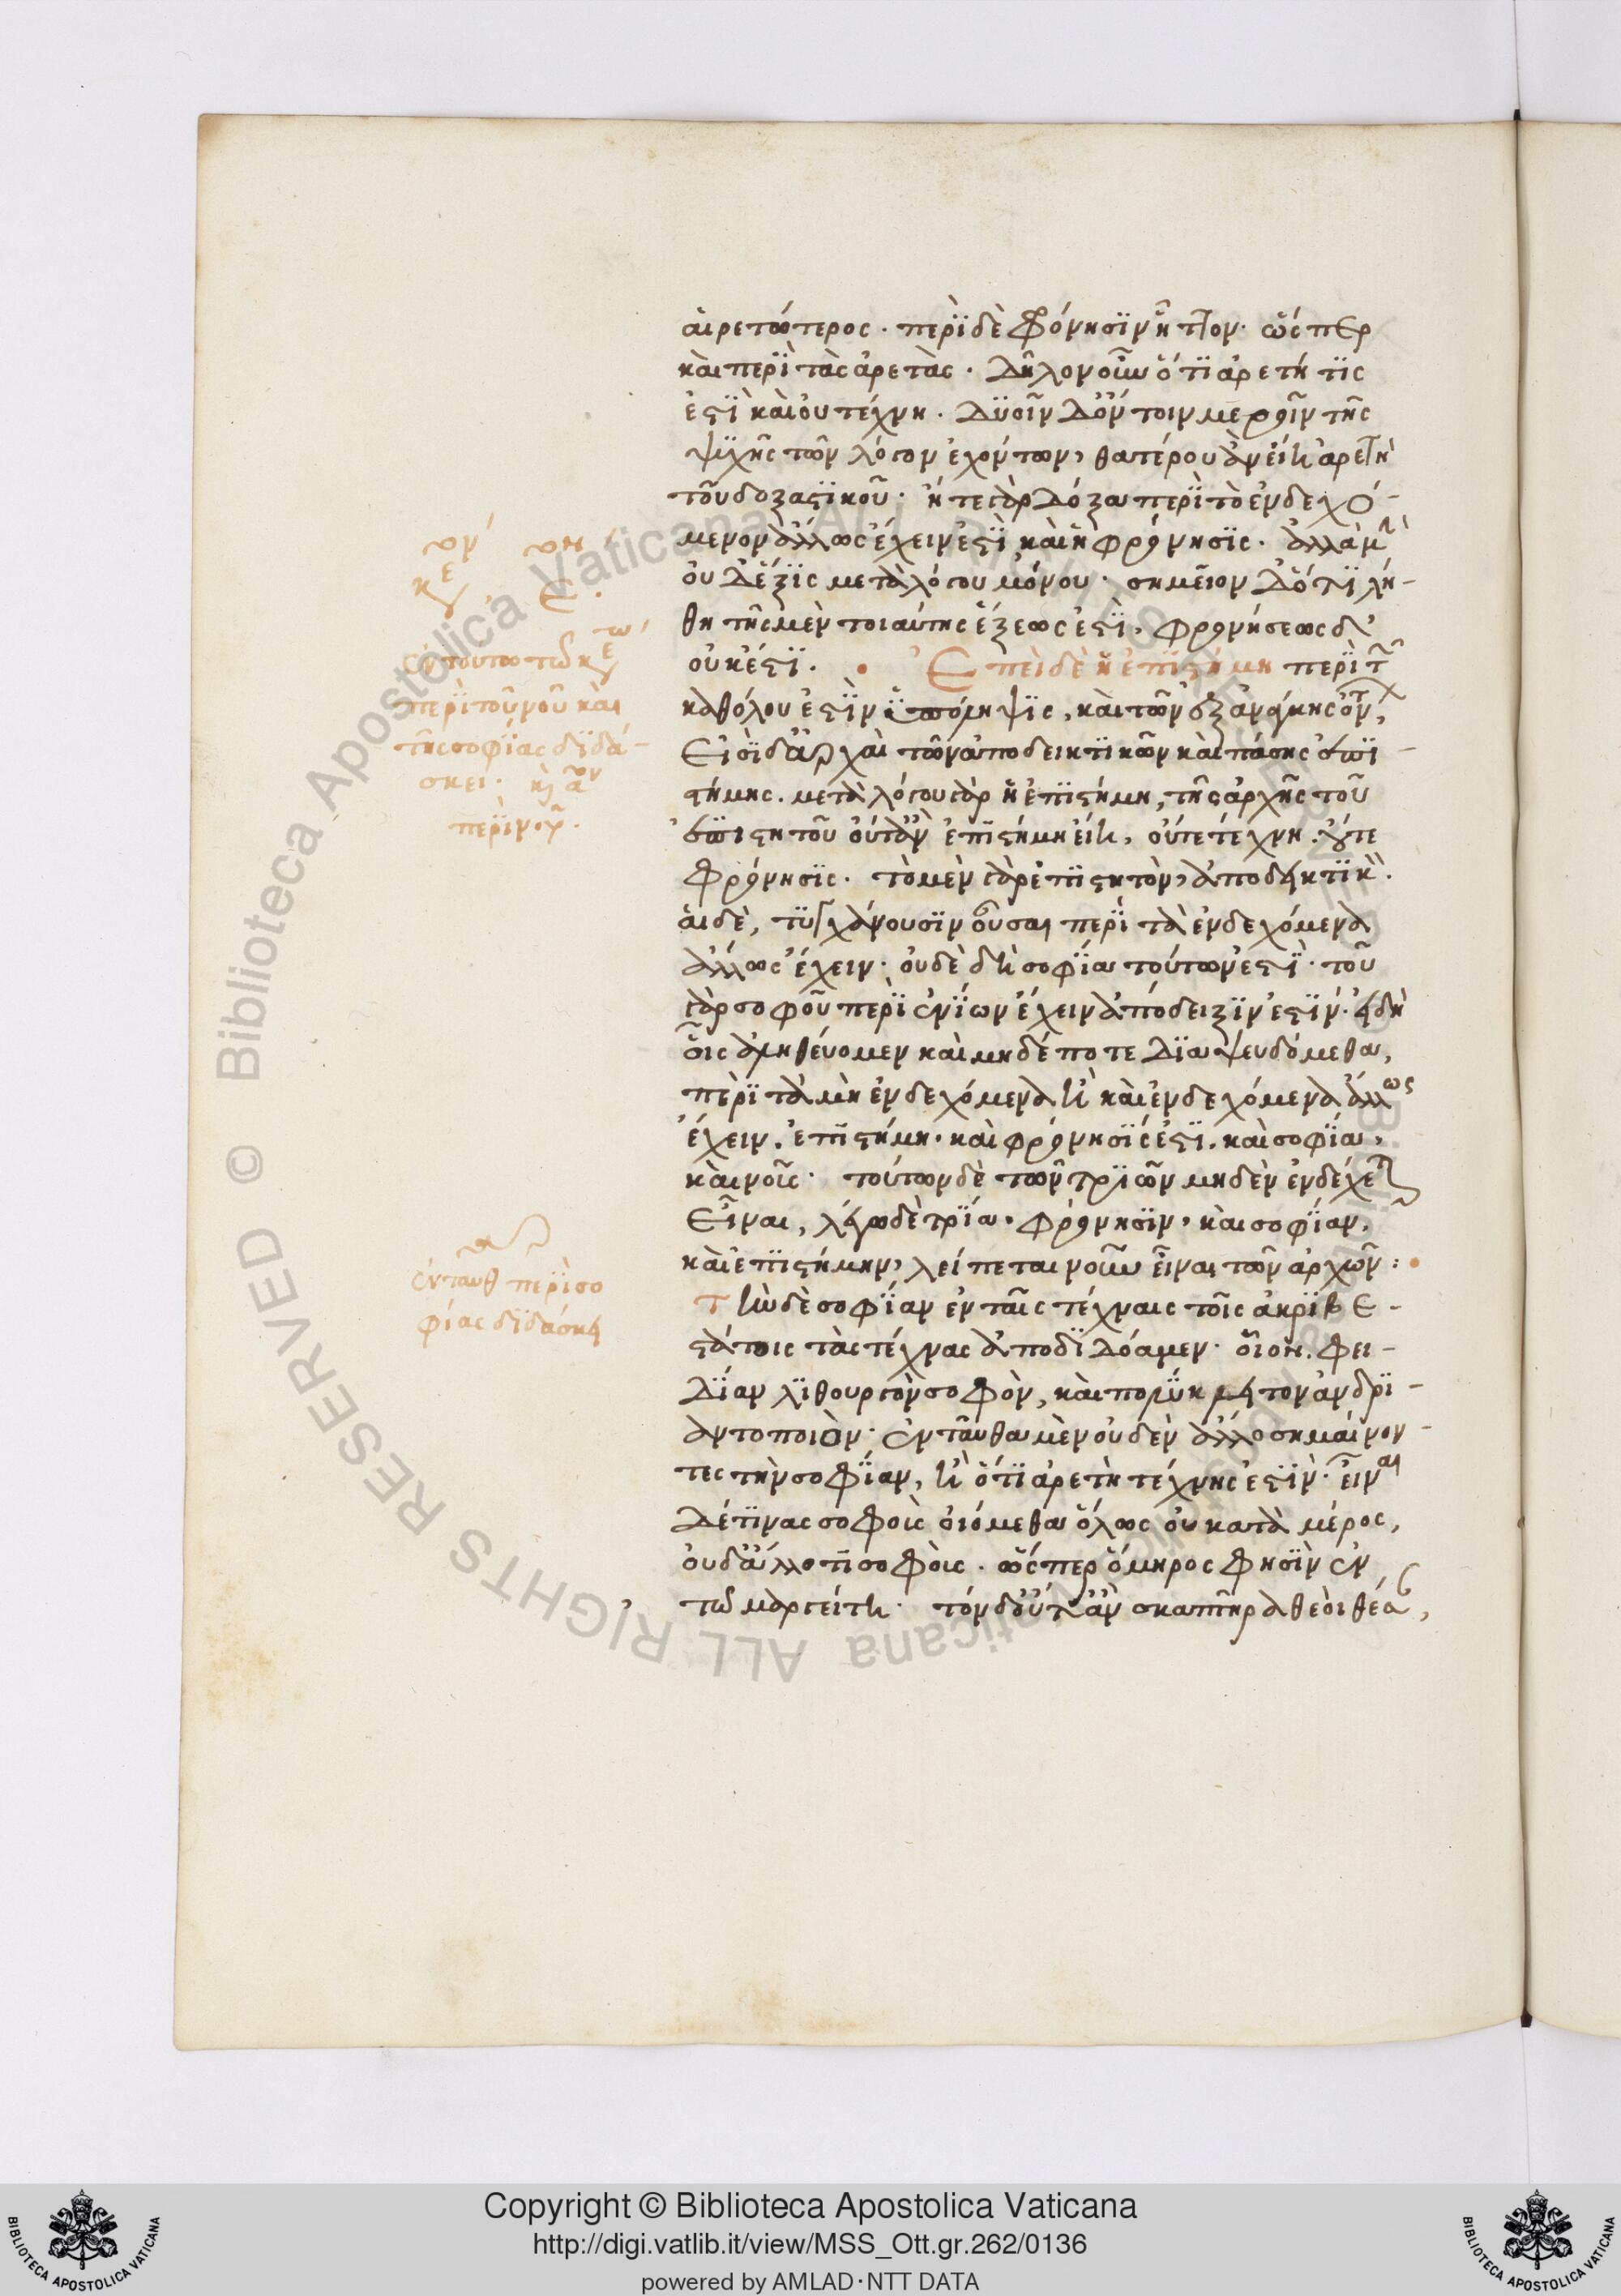 αἱρετώτερος. περὶ δὲ φρόνησιν ἧττον. ὥσπερ
καὶ περὶ τὰς ἀρετὰς. δῆλον οὖν ὅτι ἀρετή τις
ἐστὶ καὶ οὐ τέχνη. δυοῖν δ' ὄντοιν μεροῖν τῆς
ψυχῆς τῶν λόγον ἐχόντων, θατέρου ἂν εἴη ἀρετὴ
τοῦ δοξαστικοῦ. ἥ τε γὰρ δόξα περὶ τὸ ἐνδεχό-
μενον ἄλλως ἔχειν ἐστὶ καὶ ἡ φρόνησις. ἀλλὰ μὴν
οὐδ' ἕξις μετὰ λόγου μόνου. σημεῖον δ' ὅτι λή-
θη τῆς μὲν τοιαύτης ἕξεως ἐστὶ, φρονήσεως δ'
οὐκ ἔστι. Ἐπεὶ δὲ ἡ ἐπιστήμη περὶ τῶν
καθόλου ἐστὶν ὑπόληψις, καὶ τῶν ἐξ ἀνάγκης ὄντων,
εἰσὶ δ' ἀρχαὶ τῶν ἀποδεικτικῶν καὶ πάσης ἐπι-
στήμης. μετὰ λόγου γὰρ ἡ ἐπιστήμη, τῆς ἀρχῆς τοῦ
ἐπιστητοῦ οὔτ' ἂν ἐπιστήμη εἴη, οὔτε τέχνη. οὔτε
φρόνησις. τὸ μὲν γὰρ ἐπιστητὸν, ἀποδεικτικὸν.
αἱ δὲ, τυγχάνουσιν οὖσαι περὶ τὰ ἐνδεχόμενα
ἄλλως ἔχειν. οὐδὲ δὴ σοφία τούτων ἐστὶ. τοῦ
γὰρ σοφοῦ περὶ ἐνίων ἔχειν ἀπόδειξιν ἐστίν. εἰ δὴ
οἷς ἀληθεύομεν καὶ μηδέποτε διαψευδόμεθα,
περὶ τὰ μὴ ἐνδεχόμενα ἢ καὶ ἐνδεχόμενα ἄλλως
ἔχειν. ἐπιστήμη. καὶ φρόνησίς ἐστι. καὶ σοφία,
καὶ νοῦς. τούτων δὲ τῶν τριῶν μηδὲν ἐνδέχεται
εἶναι, λέγω δὲ τρία. φρόνησιν, καὶ σοφίαν,
καὶ ἐπιστήμην, λείπεται νοῦν εἶναι τῶν ἀρχῶν:
Τὴν δὲ σοφίαν ἐν ταῖς τέχναις τοῖς ἀκριβε-
στάτοις τὰς τέχνας ἀποδίδοαμεν. οἷον. Φει-
δίαν λιθουργὸν σοφὸν, καὶ πολύκλειτον ἀνδρι-
αντοποιὸν. ἐνταῦθα μὲν οὐδὲν ἄλλο σημαίνον-
τες τὴν σοφίαν, ἢ ὅτι ἀρετὴ τέχνης ἐστὶν. εἶναι
δέ τινας σοφοὺς οἰόμεθα ὅλως οὐ κατὰ μέρος,
οὐδ' ἄλλο τι σοφοὺς. ὥσπερ ὅμηρος φησὶν ἐν
τῷ μαργείτῃ. τόνδ' οὔτ' ἂν σκαπτῆρα θεοὶ θέσαν,
ἐν τούτῳ τῷ κε
περὶ τοῦ νοῦ καὶ
τῆς σοφίας διδά-
σκει. καὶ πρῶτον
περὶ νοῦ.
ἐνταῦθα περὶ σο
φίας διδάσκει
Copyright © Biblioteca Apostolica Vaticana
http://digi.vatlib.it/view/MSS_Ott.gr.262/0136
powered by AMLAD·NTT DATA
BIBLIOTECA APOSTOLICA VATICANA
BIBLIOTECA APOSTOLICA VATICANA